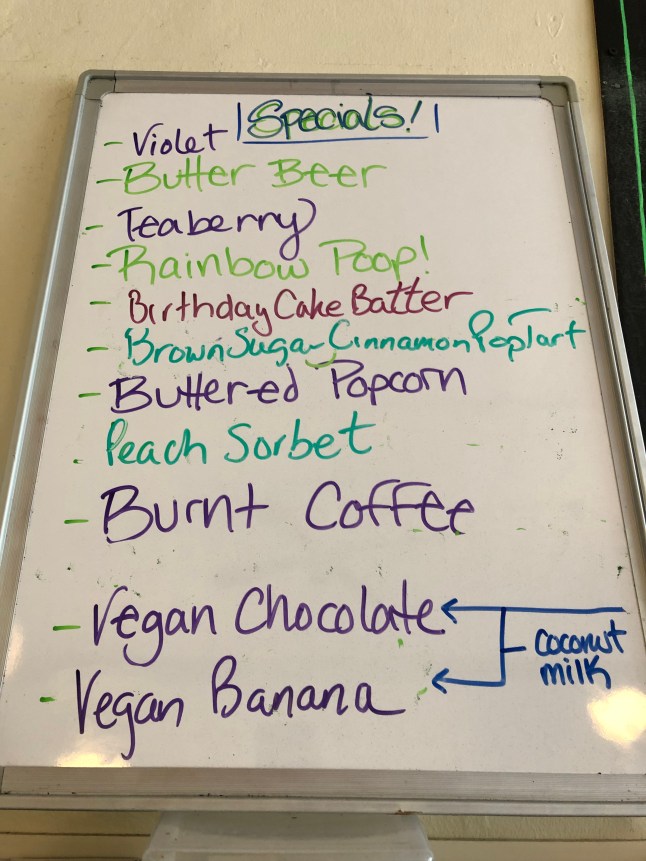 Specials!
- Violet
- Butter Beer
- Teaberry
- Rainbow Poop!
- Birthday Cake Batter
- Brown Sugar Cinnamon PopTart
- Buttered Popcorn
- Peach Sorbet
- Burnt Coffee
- Vegan Chocolate
coconut
milk
- Vegan Banana